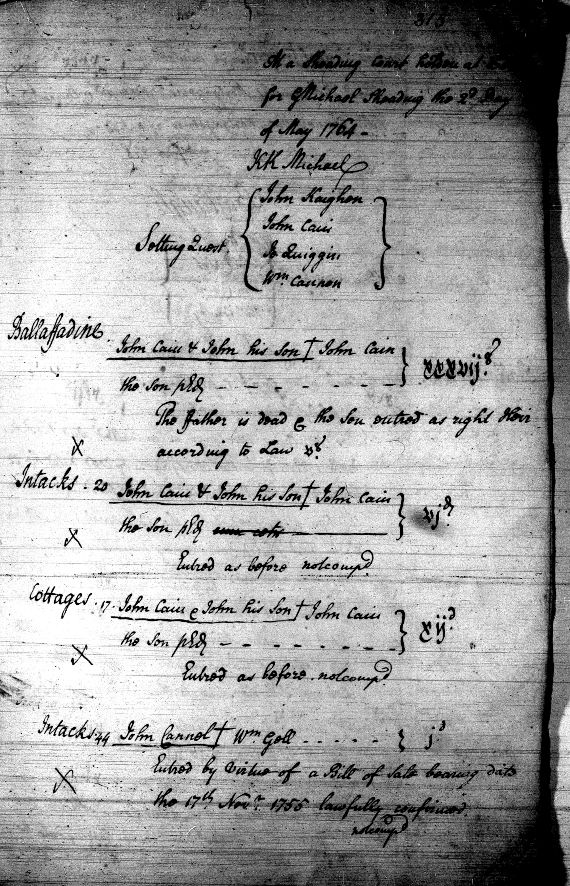 313
At a Sheading Court holden at
for GMichael Sheading the 2d Day
of May 1764 -
KK Michael
Setting Quest
John Kaighen
John Cain
Jo Quiggin
Wm Cannon
Ballaffadine
John Cain & John his Son † John Cain
the Son p - - - - - - - xxxvij s
The father is dead & the Son entred as right Heir
X according to Law vs
Intacks . 20 John Cain & John his Son † John Cain
X the Son p vj d
Entred as before notcompd
Cottages . 17 . John Cain & John his Son † John Cain
the Son p - - - - - - - xij d
X
Entred as before . notcompd
Intacks . 44 John Cannel † Wm Gell - - - - - j d
X Entred by Virtue of a Bill of Sale bearing date
the 17th Novr 1755 lawfully confirmed.
notcompd